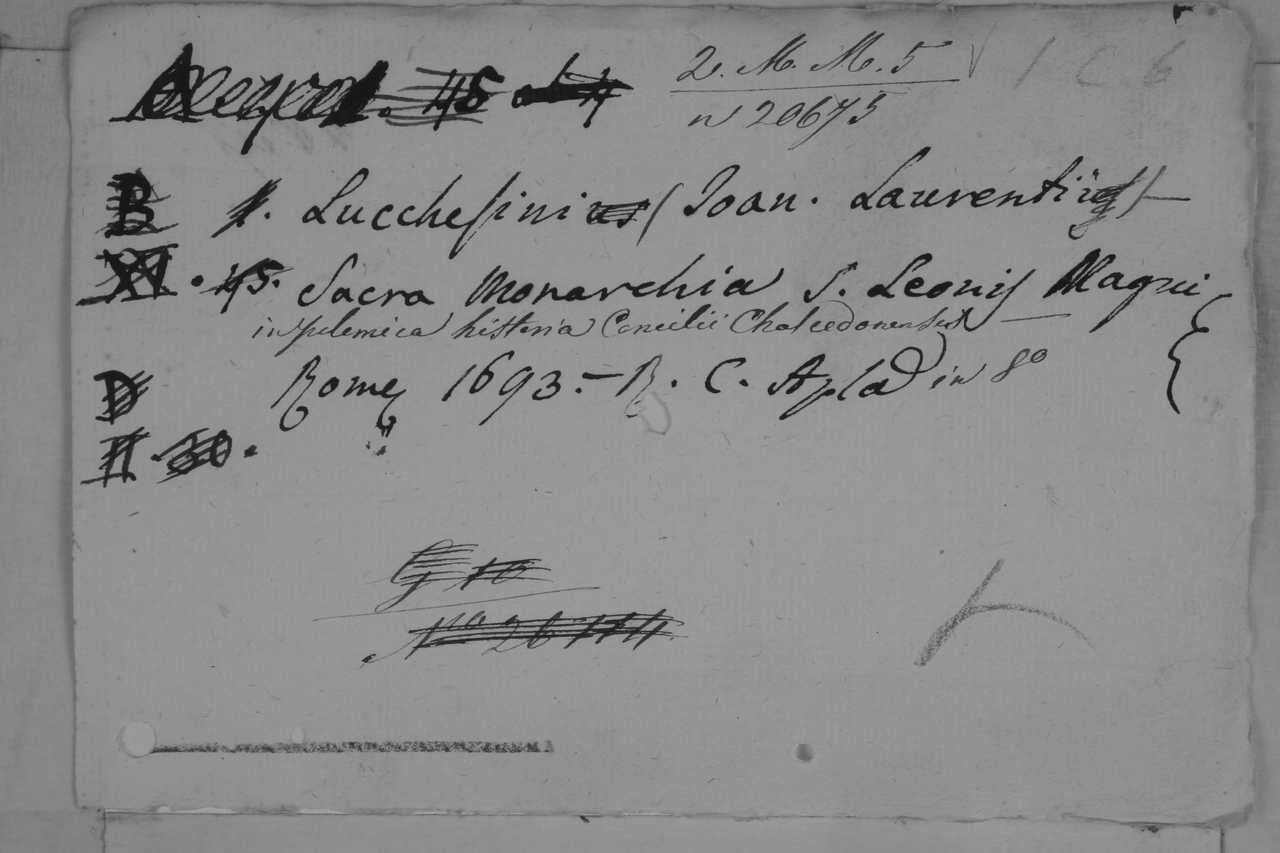 2. M. M. 5 1 C 6
n 20675
B 1. Lucchesinius (Joan. Laurentii)—
XI. 45. Sacra Monarchia S. Leonis Magni
in polemica historia Concilii Chalcedonensis
Romę 1693.— R. C. Aplā in 8º
D
II. 30.
G 10
Nº 26